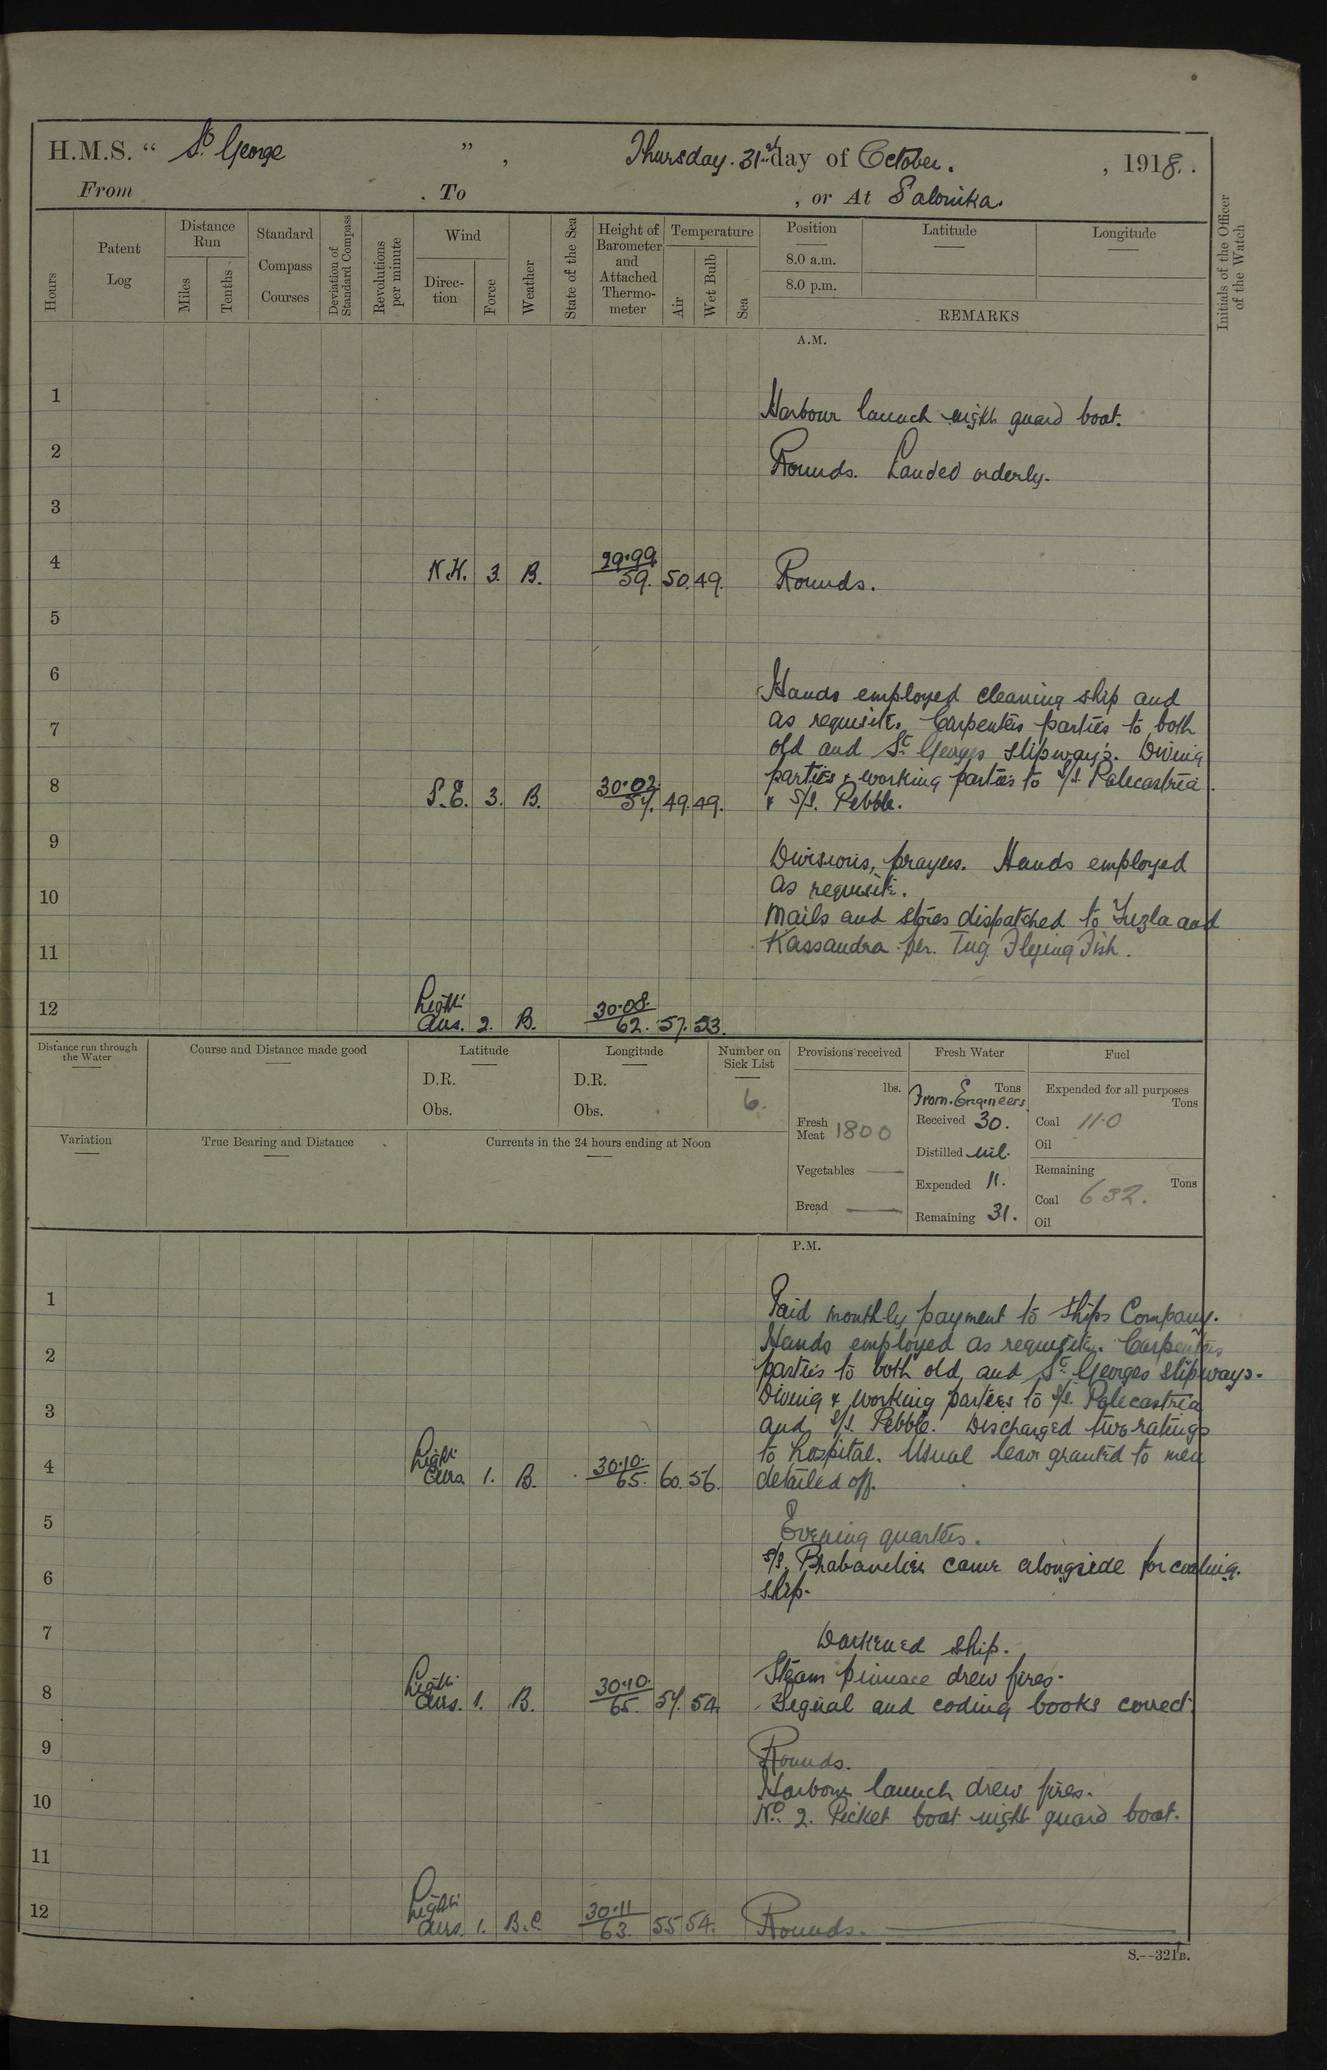 H.M.S. “ St. George ” , Thursday. 31st day of October. , 1918.
From . To , or At Salonika.
Hours
Patent Log
Distance Run
Miles
Tenths
Standard Compass Courses
Deviation of Standard Compass
Revolutions per minute
Wind
Direction
Force
Weather
State of the Sea
Height of Barometer and Attached Thermometer
Temperature
Air
Wet Bulb
Sea
Position
8.0 a.m.
8.0 p.m.
Latitude
Longitude
REMARKS
Initials of the Officer of the Watch
A.M.
1
Harbour launch night guard boat.
2
Rounds. Landed orderly.
3
4 N.W. 3. B. 29.99. 59. 50. 49. Rounds.
5
6
Hands employed cleaning ship and
7 as requisite. Carpenters parties to both
old and St. Georges slipways. Diving
8 parties & working parties to S/S. Palecastria
S.E. 3. B. 30.02. 57. 49. 49. & S/S. Pebble.
9
Divisions, prayers. Hands employed
10 as requisite.
Mails and stores dispatched to Tuzla and
11 Kassandra per. Tug Flying Fish.
12 Light Airs. 2. B. 30.08. 62. 57. 53.
Distance run through the Water
Course and Distance made good
Latitude
D.R.
Obs.
Longitude
D.R.
Obs.
Number on Sick List
6.
Provisions received
lbs.
Fresh Meat 1800
Vegetables —
Bread —
Fresh Water
Tons
From Engineers
Received 30.
Distilled nil.
Expended 11.
Remaining 31.
Fuel
Expended for all purposes
Tons
Coal 11.0
Oil
Remaining
Tons
Coal 632.
Oil
Variation
True Bearing and Distance
Currents in the 24 hours ending at Noon
P.M.
1
Paid monthly payment to Ships Company.
2 Hands employed as requisite. Carpenters
parties to both old and St. Georges slipways.
3 Diving & working parties to S/S. Palecastria
and S/S. Pebble. Discharged two ratings
4 to hospital. Usual leave granted to men
Light Airs 1. B. 30.10. 65. 60. 56. detailed off.
5
Evening quarters.
6 S/S. came alongside for coaling.
ship.
7
Darkened ship.
Steam pinnace drew fires.
8 Light Airs. 1. B. 30.10. 65. 57. 54. Signal and coding books correct.
9
Rounds.
Harbour launch drew fires.
10 No. 2. Picket boat night guard boat.
11
12 Light Airs. 1. B.C. 30.11 63. 55 54. Rounds.
S.--321B.